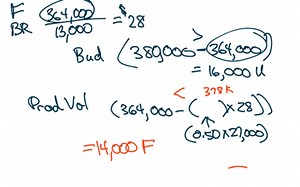 F 364,000 = $28
BR 13,000
Bud (380,000 - 364,000)
= 16,000 U
< 378K
Prod Vol (364,000 - ( ) x 28))
(0.50 x 27,000)
= 14,000 F